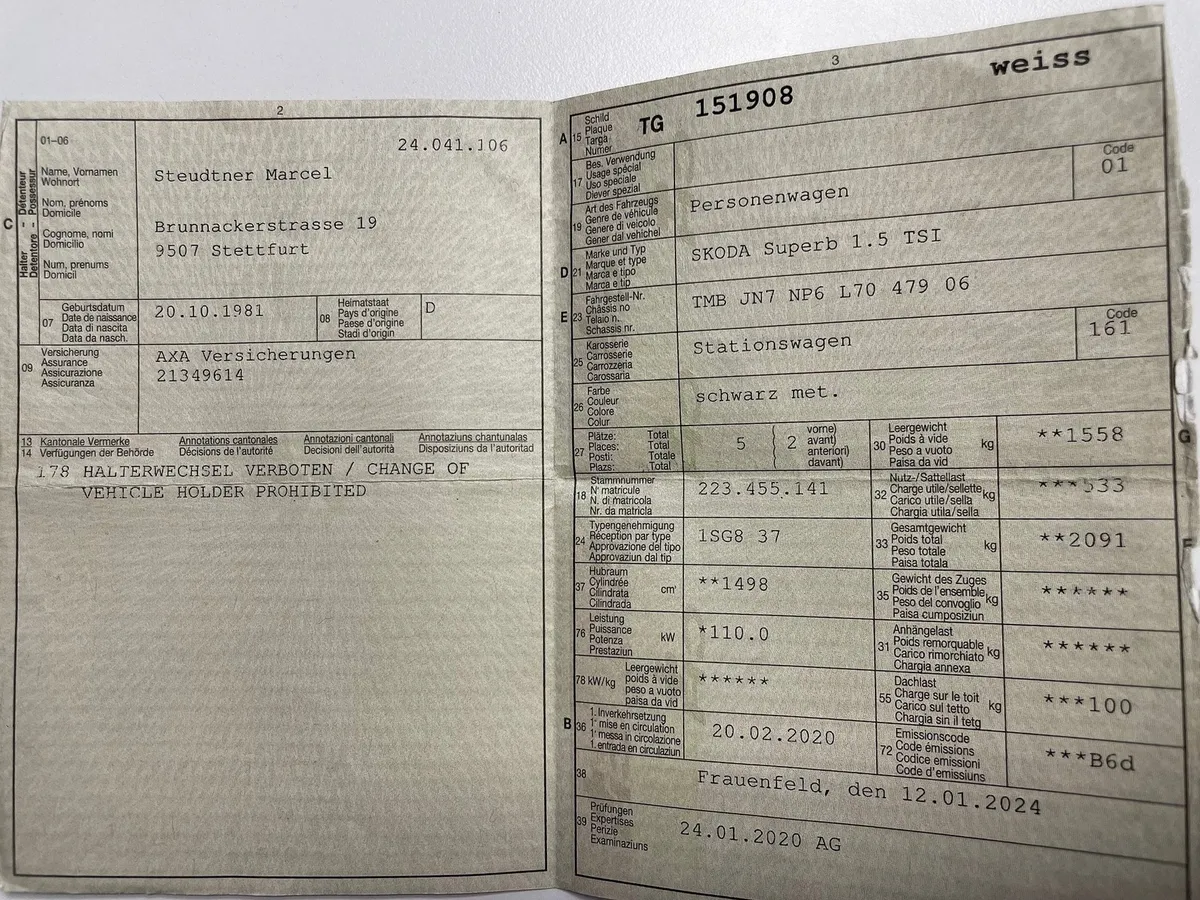 2
01-06
24.041.106
C
Halter - Détenteur
Detentore - Possessur
Name, Vornamen
Wohnort
Nom, prénoms
Domicile
Cognome, nomi
Domicilio
Num, prenums
Domicil
Steudtner Marcel
Brunnackerstrasse 19
9507 Stettfurt
07
Geburtsdatum
Date de naissance
Data di nascita
Data da nasch.
20.10.1981
08
Heimatstaat
Pays d'origine
Paese d'origine
Stadi d'origin
D
09
Versicherung
Assurance
Assicurazione
Assicuranza
AXA Versicherungen
21349614
13 Kantonale Vermerke Annotations cantonales Annotazioni cantonali Annotaziuns chantunalas
14 Verfügungen der Behörde Décisions de l'autorité Decisioni dell'autorità Disposiziuns da l'autoritad
178 HALTERWECHSEL VERBOTEN / CHANGE OF
VEHICLE HOLDER PROHIBITED
3
A 15
Schild
Plaque
Targa
Numer
TG 151908 weiss
17
Bes. Verwendung
Usage spécial
Uso speciale
Diever spezial
Code
01
19
Art des Fahrzeugs
Genre de véhicule
Genere di veicolo
Gener dal vehichel
Personenwagen
D 21
Marke und Typ
Marque et type
Marca e tipo
Marca e tip
SKODA Superb 1.5 TSI
E 23
Fahrgestell-Nr.
Châssis no
Telaio n.
Schassis nr.
TMB JN7 NP6 L70 479 06
25
Karosserie
Carrosserie
Carrozzeria
Carossaria
Stationswagen
Code
161
26
Farbe
Couleur
Colore
Colur
schwarz met.
27
Plätze: Total
Places: Total
Posti: Totale
Plazs: Total
5 { 2
vorne)
avant)
anteriori)
davant)
30
Leergewicht
Poids à vide
Peso a vuoto
Paisa da vid
kg
**1558
G
18
Stammnummer
N° matricule
N. di matricola
Nr. da matricla
223.455.141
32
Nutz-/Sattellast
Charge utile/sellette
Carico utile/sella
Chargia utila/sella
kg
***533
24
Typengenehmigung
Réception par type
Approvazione del tipo
Approvaziun dal tip
1SG8 37
33
Gesamtgewicht
Poids total
Peso totale
Paisa totala
kg
**2091
F
37
Hubraum
Cylindrée
Cilindrata
Cilindrada
cm³
**1498
35
Gewicht des Zuges
Poids de l'ensemble
Peso del convoglio
Paisa cumposiziun
kg
******
76
Leistung
Puissance
Potenza
Prestaziun
kW
*110.0
31
Anhängelast
Poids remorquable
Carico rimorchiato
Chargia annexa
kg
******
78 kW/kg
Leergewicht
poids à vide
peso a vuoto
paisa da vid
******
55
Dachlast
Charge sur le toit
Carico sul tetto
Chargia sin il tetg
kg
***100
B 36
1. Inverkehrsetzung
1re mise en circulation
1a messa in circolazione
1. entrada en circulaziun
20.02.2020
72
Emissionscode
Code émissions
Codice emissioni
Code d'emissiuns
***B6d
38
Frauenfeld, den 12.01.2024
39
Prüfungen
Expertises
Perizie
Examinaziuns
24.01.2020 AG